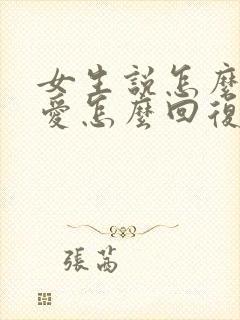 女生説怎麼
愛怎麼回復
張芮